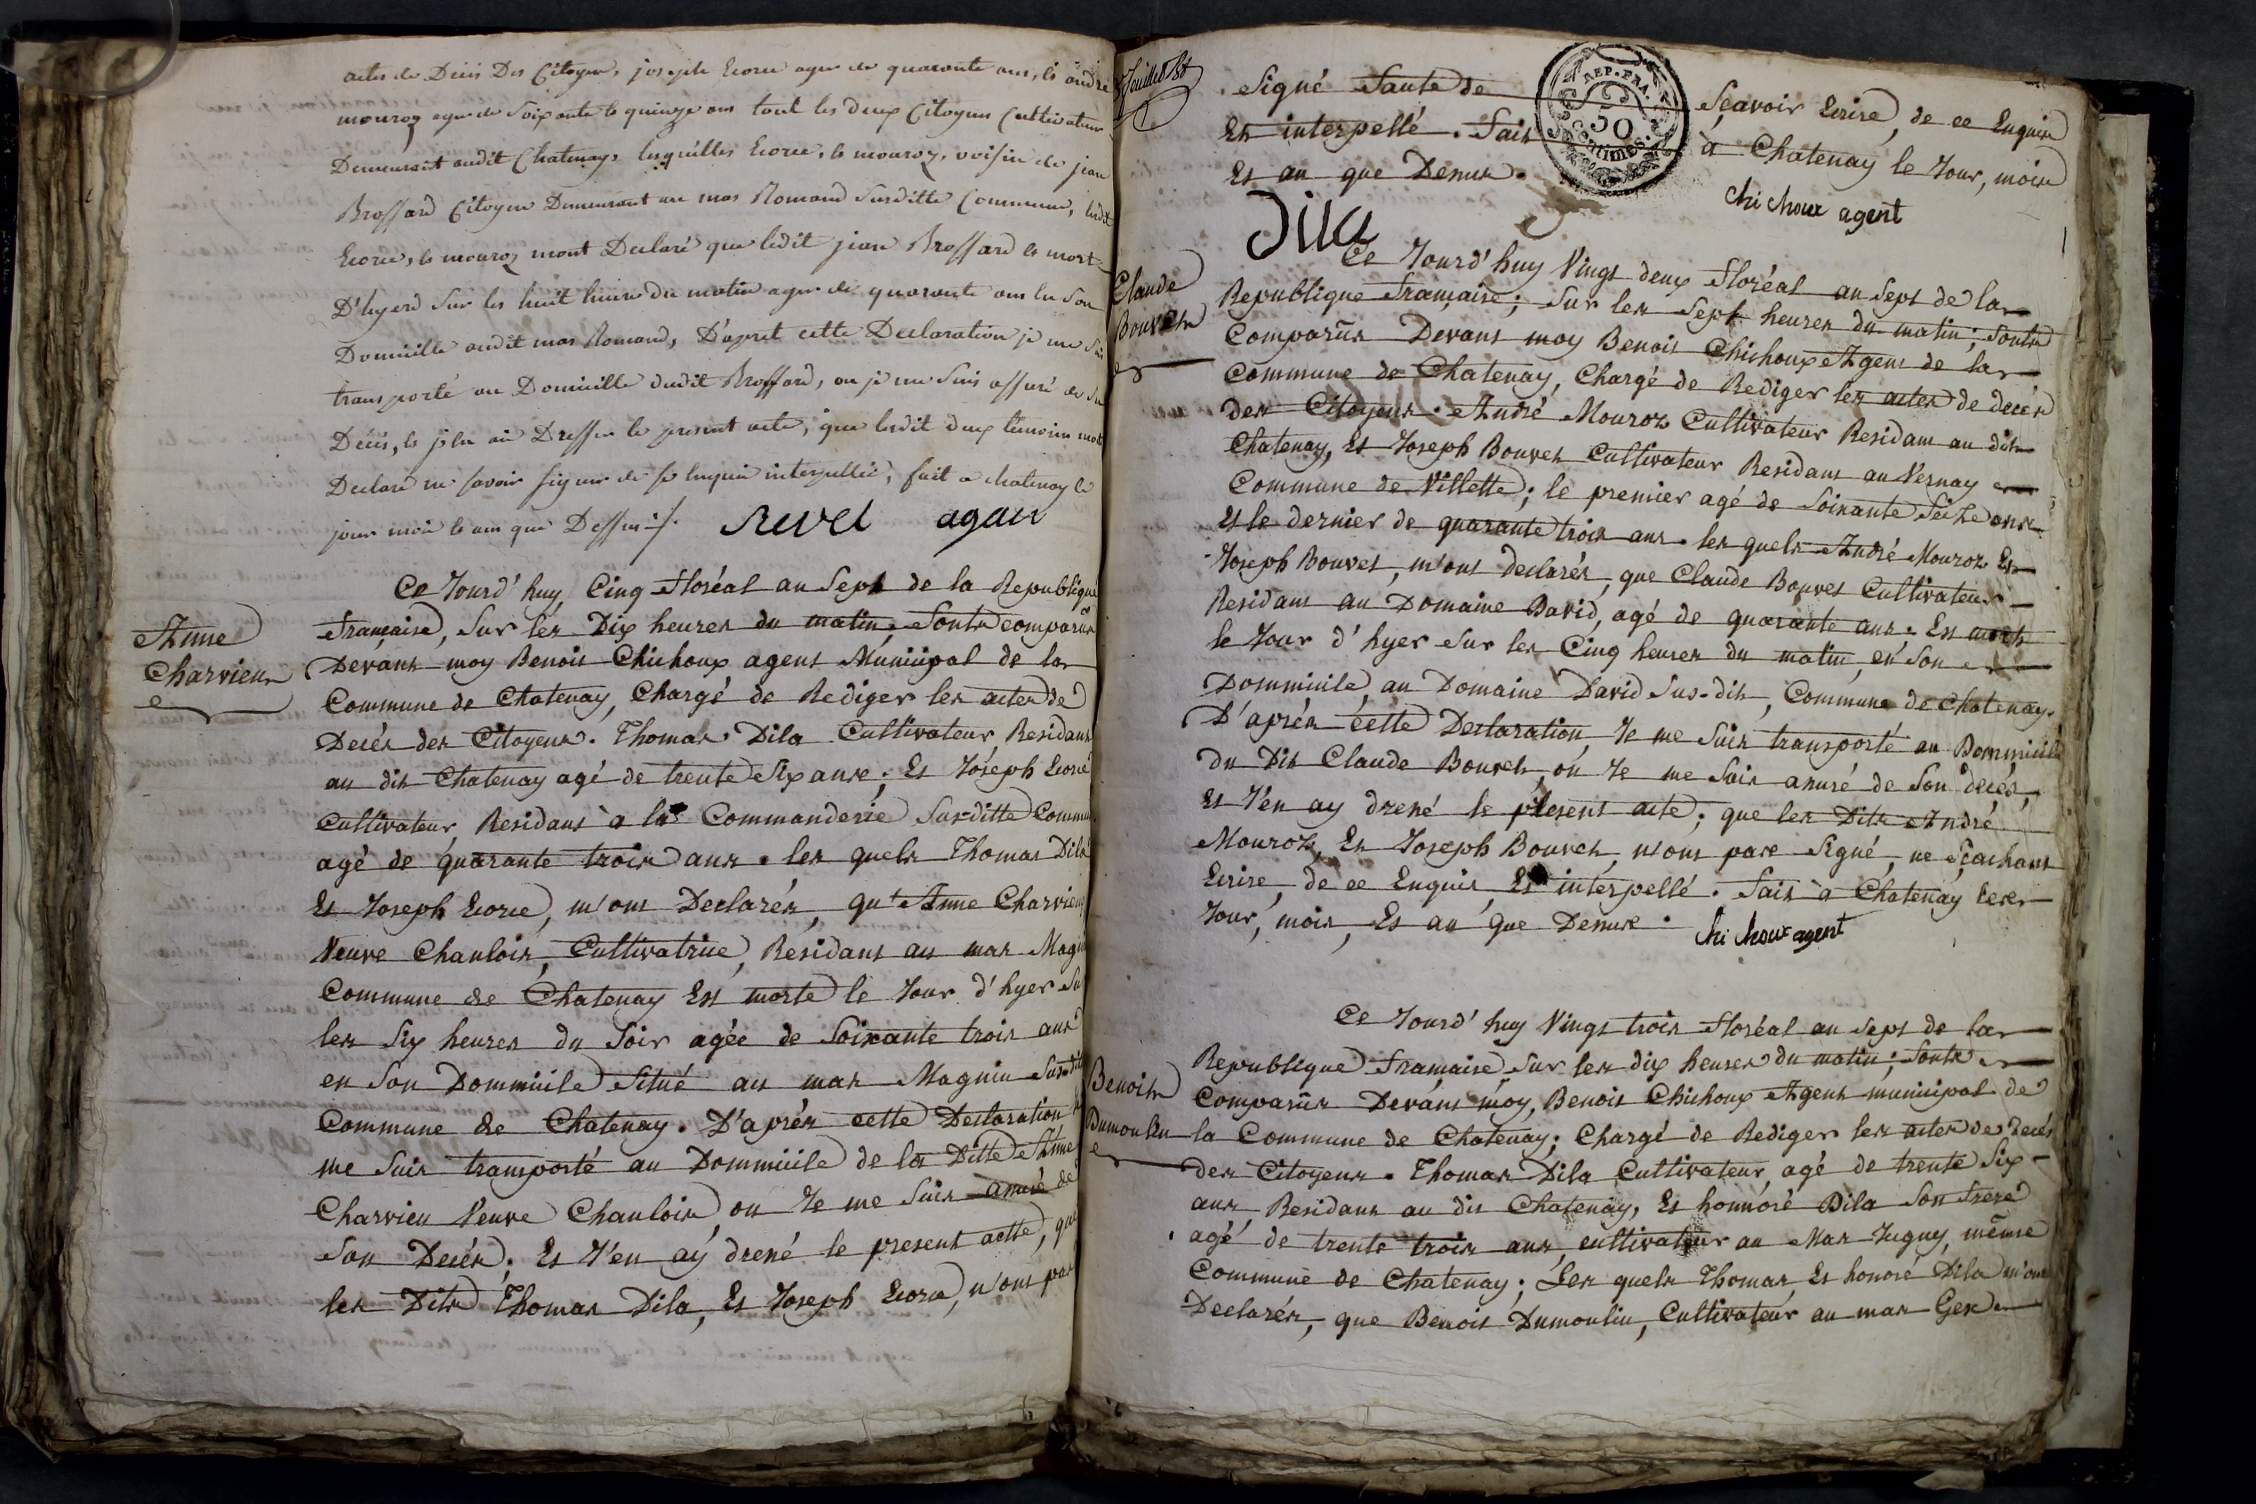 actes de Décis Des Citoyens, josephe Ecorce agee de quaranté ans, les andré
mouroz agee de Soixante le quinze ans tout les deux Citoyens Cultivateur
Demeurant audit Chatenay, lesquelles Ecorce, le mouroz, voisin de jean
Brossard Citoyen Demeurant au mas Romand Susditte Commune, ledit
Ecorce, le mouroz mont Declaré que ledit jean Brossard es mort
D'hyerd sur les huit heure du matin agee de quarante ans en son
Domicille audit mas Romand, D'apret cette Declaration je me suis
transporté au Domicille dudit Brossard, ou je me suis assuré de son
Décis, le jé en ai Dressee le present acte, que lesdit deux temoins mont
Declaré ne savoir signer de se enquis interpellée, fait a chatenay le
jour mois le an que Dessus ./. revel agan
Anne
Charvieux
Ce Jourd'huy Cinq Floréal an Sept de la Republique
Française, Sur les Dix heures du matin, Sont comparus
Devant moy Benoit Chichoux agent Municipal de la
Commune de Chatenay, Chargé de Rediger les actes de
Decés des Citoyens. Thomas Dila Cultivateur Residant
au dit Chatenay agé de trente Six ans; Et Joseph Ecorce
Cultivateur Residant à la Commanderie Sus-ditte Commune
agé de quarante trois ans. les quels Thomas Dila
Et Joseph Ecorce, m'ont Declarés, qu'Anne Charvieu
Veuve Chanloix, Cultivatrice, Residant au mas Magnin
Commune de Chatenay Est morte le Jour d'hyer Sur
les Six heures du Soir agée de Soixante trois ans
en Son Dommicile Situé au mas Magnin Sus-dit
Commune de Chatenay. D'aprés cette Declaration
me Suis transporté au Dommicile de la Ditte Anne
Charvieu Veuve Chanloix, ou Je me Suis assuré de
Son Decés; Et J'en aÿ dressé le present acte, que
les Dits Thomas Dila, Et Joseph Ecorce, n'ont pas
Signé Faute de Sçavoir Ecrire, de ce Enquis
Et interpellé. Fait à Chatenay le Jour, mois
Et an que Dessus.
REP. FRA.
50
Centimes
chichoux agent
Dila
Claude
Bouvet
Ce Jourd'huy Vingt deux Floréal an Sept de la
Republique Française; Sur les Sept heures du matin; Sont
Comparus Devant moy Benoit Chichoux Agent de la
Commune de Chatenay, Chargé de Rediger les actes de decés
des Citoyens. André Mouroz Cultivateur Residant au dit
Chatenay, Et Joseph Bouvet Cultivateur Residant au Vernay
Commune de Villette; le premier agé de Soixante Seize ans
Et le dernier de quarante trois ans. les quels André Mouroz Et
Joseph Bouvet, m'ont declarés, que Claude Bouvet Cultivateur
Residant au Domaine David, agé de quarante ans. Est mort
le Jour d'hyer Sur les Cinq heures du matin, en Son
Dommicile au Domaine David Sus-dit, Commune de Chatenay.
D'aprés cette Declaration, Je me Suis transporté au Dommicile
du Dit Claude Bouvet, ou Je me Suis assuré de Son decés,
Et J'en ay dressé le present acte; que les Dits André
Mouroz, Et Joseph Bouvet, n'ont pas Signé, ne Sçachant
Ecrire, de ce Enquis, Et interpellé. Fait à Chatenay les
Jour, mois, Et an que Dessus. chichoux agent
Benoit
Dumoulin
Ce Jourd'huy Vingt trois Floréal an Sept de la
Republique Française, Sur les dix heures du matin; Sont
Comparus Devant moy, Benoit Chichoux Agent municipal de
la Commune de Chatenay; Chargé de Rediger les actes de Decés
des Citoyens. Thomas Dila Cultivateur, agé de trente Six
ans, Residant au dit Chatenay, Et honnoré Dila Son frere
agé de trente trois ans, cultivateur au Mas Jugny, même
Commune de Chatenay; Les quels Thomas, Et honoré Dila m'ont
Declarés, que Benoit Dumoulin, Cultivateur au mas Gex